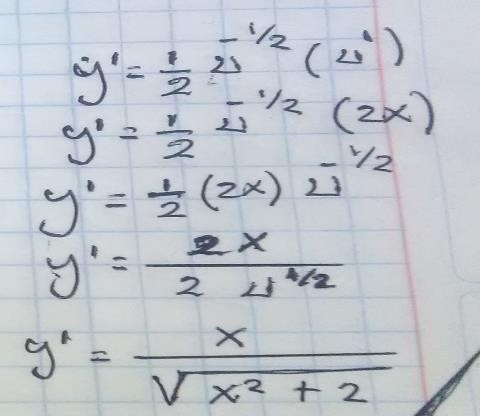 y' = 1/2 u^-1/2 (u')
y' = 1/2 u^-1/2 (2x)
y' = 1/2 (2x) u^-1/2
y' = 2x / 2 u^1/2
y' = x / √(x² + 2)